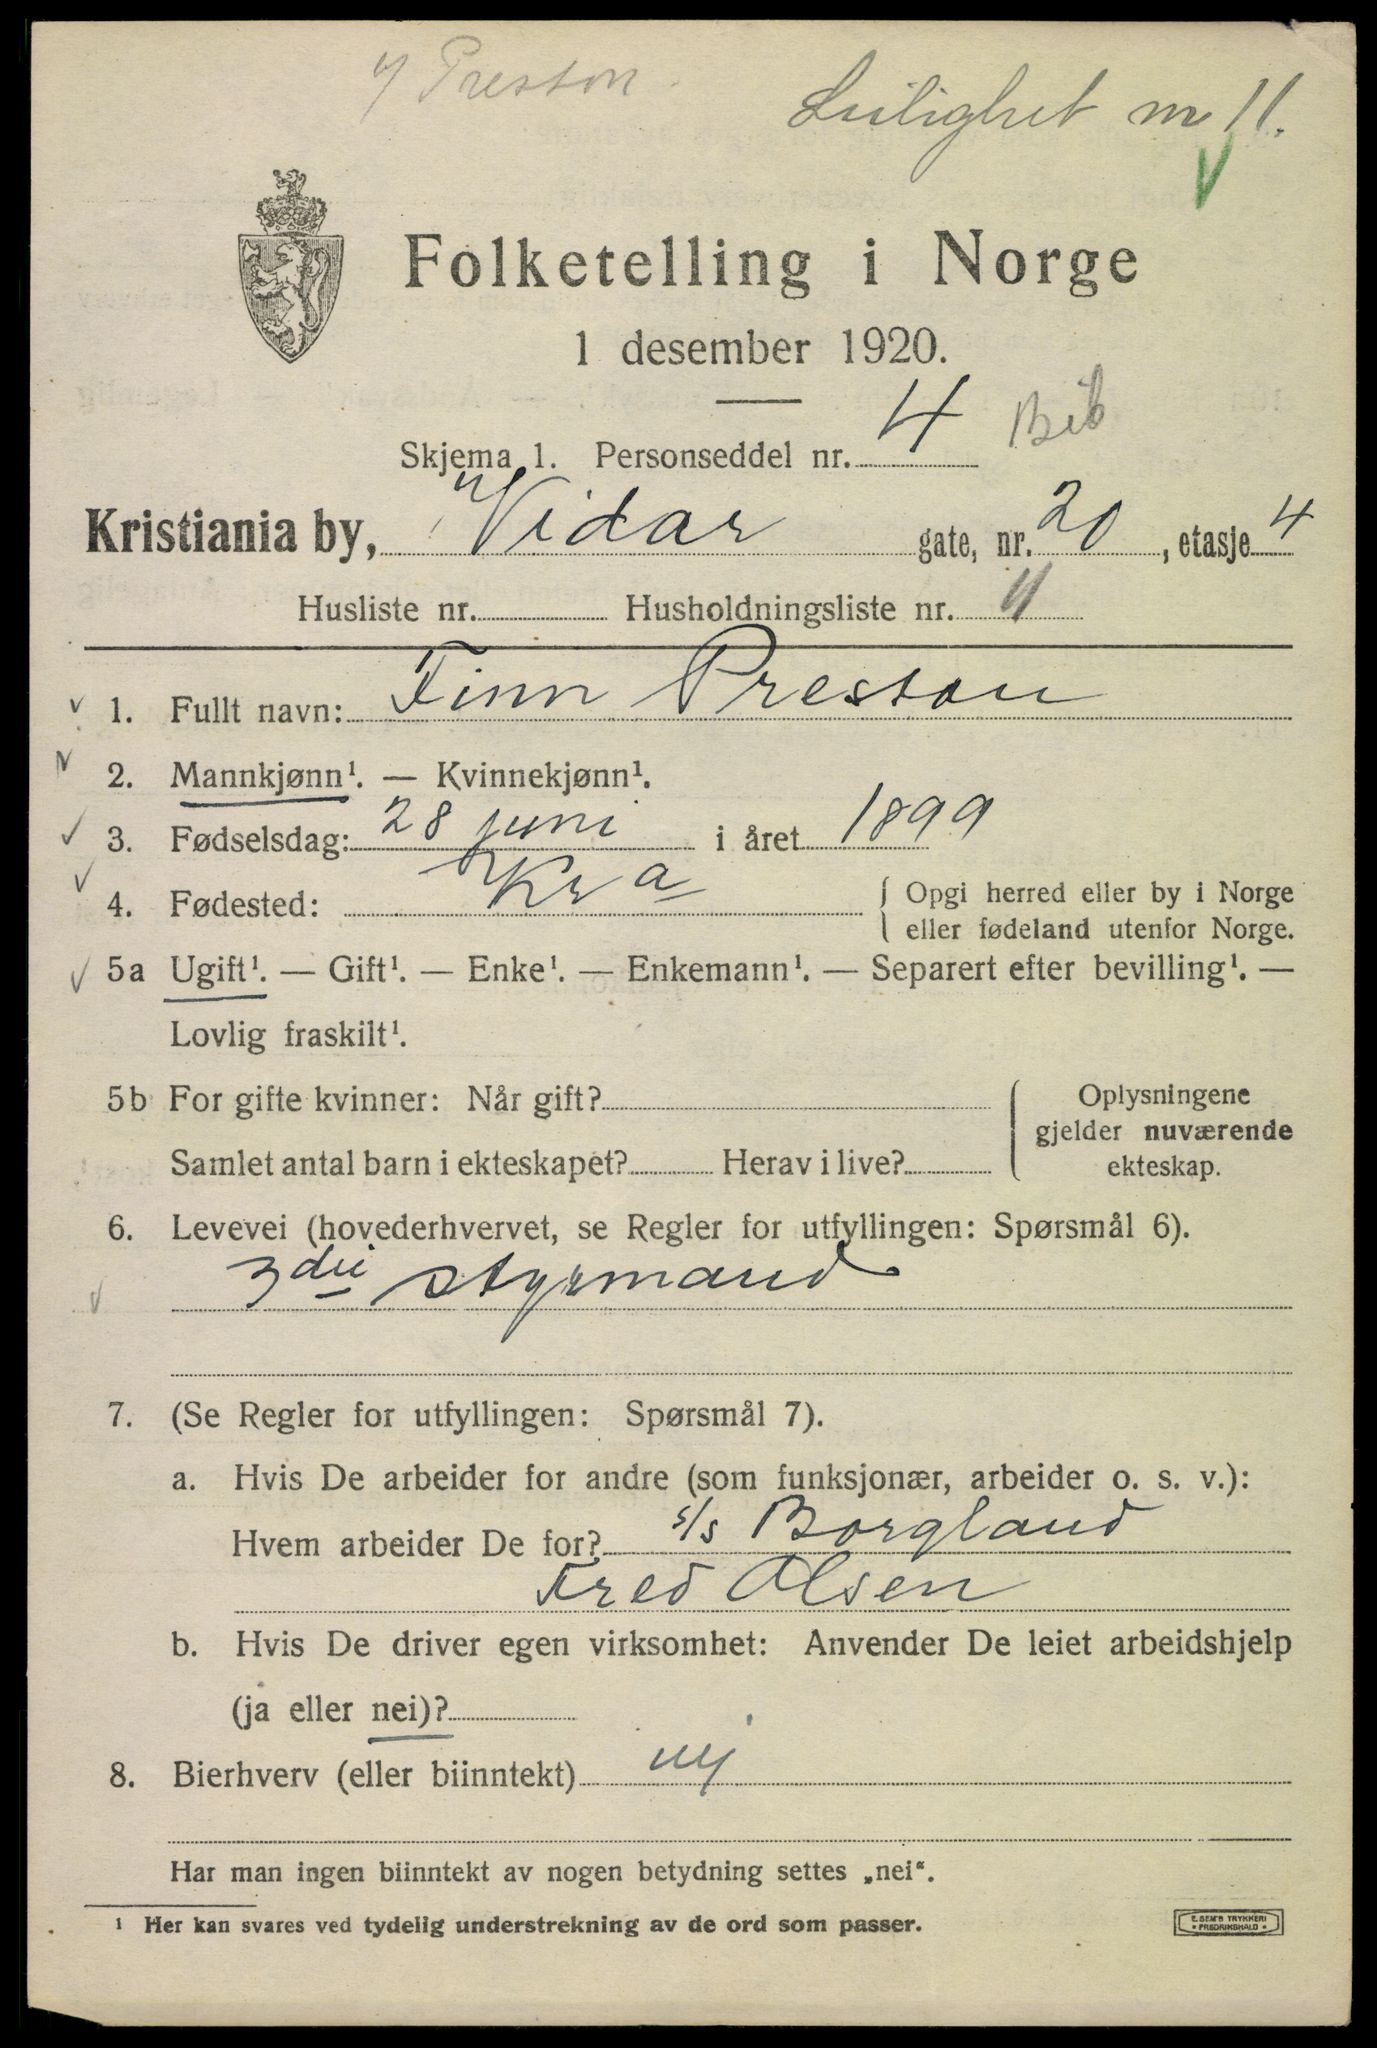 Preston
Leilighet nr 11.
Folketelling i Norge
1 desember 1920.
Skjema 1. Personseddel nr. 4
Kristiania by, Vidar gate, nr. 20, etasje 4
Husliste nr. Husholdningsliste nr. 11
1. Fullt navn: Finn Preston
2. Mannkjønn¹. — Kvinnekjønn¹.
3. Fødselsdag: 28 juni i året 1899
4. Fødested: Kra { Opgi herred eller by i Norge
eller fødeland utenfor Norge.
5a Ugift¹. — Gift¹. — Enke¹. — Enkemann¹. — Separert efter bevilling¹. —
Lovlig fraskilt¹.
5b For gifte kvinner: Når gift? Oplysningene
gjelder nuværende
Samlet antal barn i ekteskapet? Herav i live? ekteskap.
6. Levevei (hovederhvervet, se Regler for utfyllingen: Spørsmål 6).
3die styrmand
7. (Se Regler for utfyllingen: Spørsmål 7).
a. Hvis De arbeider for andre (som funksjonær, arbeider o. s. v.):
Hvem arbeider De for? s/s Borgland
Fred Olsen
b. Hvis De driver egen virksomhet: Anvender De leiet arbeidshjelp
(ja eller nei)?
8. Bierhverv (eller biinntekt) nej
Har man ingen biinntekt av nogen betydning settes „nei“.
¹ Her kan svares ved tydelig understrekning av de ord som passer.
E. SEM'S TRYKKERI
• FREDRIKSHALD •